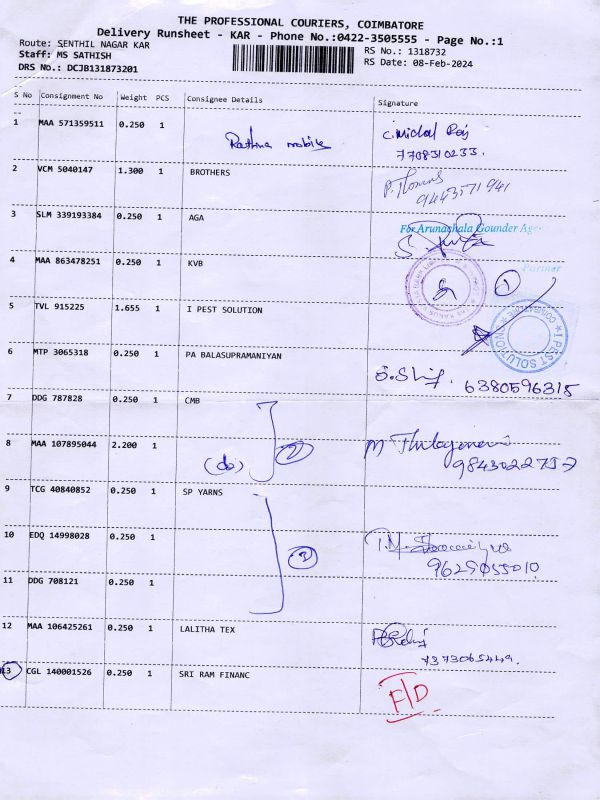 THE PROFESSIONAL COURIERS, COIMBATORE
Delivery Runsheet - KAR - Phone No.:0422-3505555 - Page No.:1
Route: SENTHIL NAGAR KAR
RS No.: 1318732
Staff: MS SATHISH
RS Date: 08-Feb-2024
DRS No.: DCJB131873201
S No Consignment No Weight PCS Consignee Details Signature
1 MAA 571359511 0.250 1 Rathna mobile C. Michal Raj
7708310233.
2 VCM 5040147 1.300 1 BROTHERS
9443571941
3 SLM 339193384 0.250 1 AGA
For Arunachala Gounder Age
Partner
4 MAA 863478251 0.250 1 KVB 1
5 TVL 915225 1.655 1 I PEST SOLUTION
I PEST SOLUTION
6 MTP 3065318 0.250 1 PA BALASUPRAMANIYAN
6380596315
7 DDG 787828 0.250 1 CMB
8 MAA 107895044 2.200 1 (do) 2
9843022757
9 TCG 40840852 0.250 1 SP YARNS
10 EDQ 14998028 0.250 1 3
9629055010
11 DDG 708121 0.250 1
12 MAA 106425261 0.250 1 LALITHA TEX
7373065449.
13 CGL 140001526 0.250 1 SRI RAM FINANC F/D